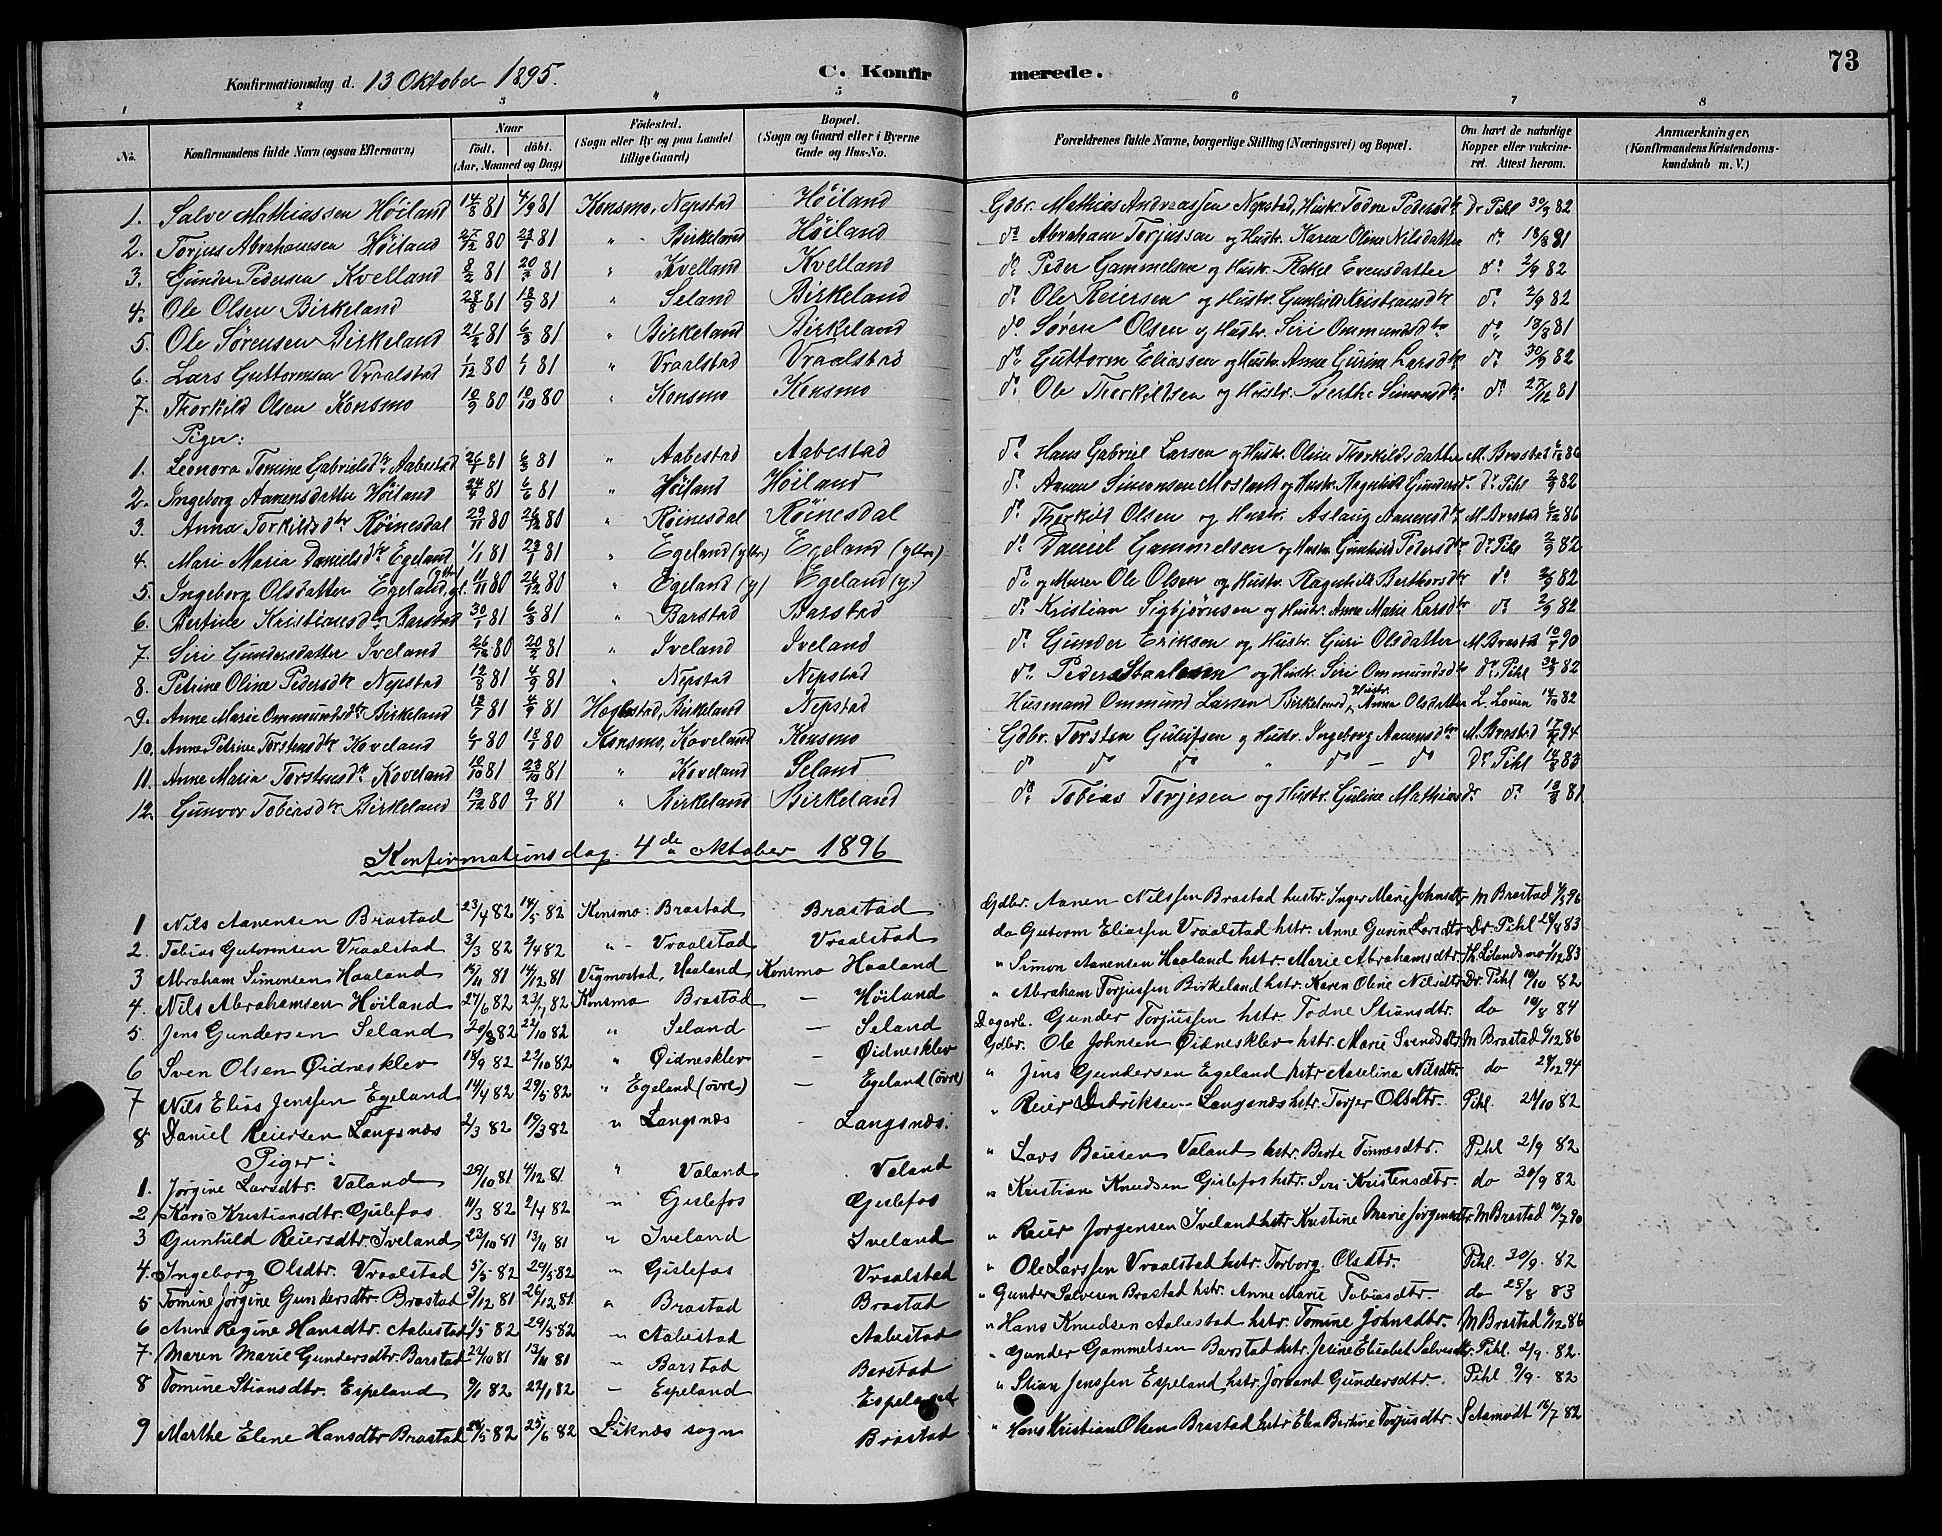 73
Konfirmationsdag d. 13 Oktober 1895.
C. Konfirmerede.
1 2 3 4 5 6 7 8
No. Konfirmandens fulde Navn (ogsaa Efternavn) Naar födt. döbt. (Aar, Maaned og Dag) Födested. (Sogn eller By og paa Landet tillige Gaard) Bopæl. (Sogn og Gaard eller i Byerne Gade og Hus-No. Forældrenes fulde Navne, borgerlige Stilling (Næringsvei) og Bopæl. Om havt de naturlige Kopper eller vakcineret. Attest herom. Anmærkninger, (Konfirmandens Kristendomskundskab m. V.)
1. Salve Mathiassen Höiland 14/8 81 4/9 81 Konsmo, Nepstad Höiland Gdbr. Mathias Andreassen Nepstad, Hustr. Todne Pedersdtr Dr Pihl 30/9 82
2. Torjus Abrahamsen Höiland 27/12 80 23/1 81 " - Birkeland Höiland do Abraham Torjussen og Hustr. Karen Oline Nilsdatter do 18/8 81
3. Gunder Pedersen Kvelland 8/2 81 20/3 81 " Kvelland Kvelland do Peder Gammelsen og Hustr. Rakel Evensdatter do 2/9 82
4. Ole Olsen Birkeland 28/8 81 18/9 81 " Seland Birkeland do Ole Reiersen og Hustr. Gunhild Kristiansdtr do 2/9 82
5. Ole Sørensen Birkeland 21/2 81 6/3 81 " Birkeland Birkeland do Søren Olsen og Hustr. Siri Ommundsdtr do 18/8 81
6. Lars Guttormsen Vraalstad 1/12 80 1/1 81 " Vraalstad Vraalstad do Guttorm Eliassen og Hustr Anne Gurine Larsdtr do 30/9 82
7. Thorkild Olsen Konsmo 10/9 80 10/10 80 " Konsmo Konsmo do Ole Thorkildsen og Hustr. Berthe Simonsdtr do 27/12 81
Piger:
1. Leonora Tomine Gabrielsdtr Aabestad 26/1 81 6/3 81 " Aabestad Aabestad do Hans Gabriel Larsen og Hustr. Oline Thorkildsdatter M. Brastad 6/12 86
2. Ingeborg Aanensdatter Höiland 24/4 81 6/6 81 " Höiland Höiland do Aanen Simonsen Mosland og Hustr. Ragnhild Gundersd. Dr Pihl 2/9 82
3. Anna Torkildsdtr Röinesdal 29/11 80 26/12 80 " Röinesdal Röinesdal do Thorkild Olsen og Hustr. Aslaug Aanensdtr M. Brastad 6/12 86
4. Mari Maria Danielsdtr Egeland 1/1 81 23/1 81 " Egeland (ytre) Egeland (ytre) do Daniel Gammelsen og Hustr. Gunhild Pedersdtr Dr Pihl 2/9 82
5. Ingeborg Olsdatter Egeland, 4/11 80 26/12 80 " Egeland (y) Egeland (y) do og Murer Ole Olsen og Hustr. Ragnhild Berthorsdtr do 2/9 82
6. Bertine Kristiansdtr Barstad 30/1 81 6/3 81 " Barstad Barstad do Kristian Sigbjørnsen og Hustr. Anne Marie Larsdtr do 2/9 82
7. Siri Gundersdatter Iveland 26/12 80 20/2 81 " Iveland Iveland do Gunder Eriksen og Hustr. Guri Olsdatter M. Brastad 10/7 90
8. Petrine Oline Pedersdtr Nepstad 12/8 81 4/9 81 " Nepstad Nepstad do Peder Staalesen og Hustr. Siri Ommundsdtr Dr Pihl 30/9 82
9. Anne Marie Ommundsdtr Birkeland 13/7 81 4/9 81 Hægbostad, Birkeland Nepstad Husmand Ommund Larsen Birkeland, Hustr. Anna Olsdatter L. Louen 14/10 82
10. Anne Petrine Torstensdtr Koveland 6/1 80 18/1 80 Konsmo, Koveland Konsmo Gdbr. Torsten Gulufsen og Hustr. Ingeborg Aanensdtr M. Brastad 17/9 94
11. Anne Maria Torstensdtr Koveland 10/10 81 23/10 81 " Koveland Seland do do do " do — do Dr Pihl 14/8 83
12. Gunvor Tobiasdtr Birkeland 13/12 80 9/1 81 " Birkeland Birkeland do Tobias Torjesen og Hustr. Guline Mathiasdr do 18/8 81
Konfirmationsdag. 4de Oktober 1896
1 Nils Aanensen Brastad 23/4 82 14/5 82 Konsmo: Brastad Brastad Gdbr. Aanen Nilssen Brastad hustr. Inger Marie Johnsdtr M Brastad 1/5 96
2 Tobias Gutormsen Vraalstad 3/3 82 2/4 82 " - Vraalstad Vraalstad do Gutorm Eliassen Vraalstad hstr. Anne Gurine Larsdtr Dr Pihl 28/8 83
3 Abraham Simonsen Haaland 14/11 81 14/12 81 Vigmostad, Haaland Konsmo Haaland " Simon Aanensen Haaland hstr. Marie Abrahamsdtr. Th. Lölandsmo 1/12 83
4. Nils Abrahamsen Höiland 27/6 82 23/7 82 Konsmo Brastad — Höiland " Abraham Torjussen Birkeland hstr. Karen Oline Nilsdtr Dr. Pihl 10/10 82
5 Jens Gundersen Seland 20/8 82 22/10 82 " Seland — Seland Dagarb. Gunder Torjussen hstr. Todne Stiansdtr. do 10/8 84
6 Sven Olsen Øidnesklev 18/9 82 22/10 82 " Øidnesklev — Øidnesklev Gdbr. Ole Johnsen Øidnesklev hstr. Marie Svendsdtr. M Brastad 6/12 86
7 Nils Elias Jenssen Egeland 14/4 82 29/5 82 " Egeland (övre) — Egeland (övre) " Jens Gundersen Egeland hstr Aaselina Nilsdtr. do 24/12 94
8 Daniel Reiersen Langsnæs 2/3 82 19/3 82 " Langsnæs - Langsnæs. " Reier Didriksen Langsnæs hstr. Torjer Olsdtr. Pihl. 21/10 82
Piger:
1. Jørgine Larsdtr. Valand 29/10 81 4/12 81 " Valand Valand " Lars Baiesen Valand hstr. Berte Tönnesdtr. Pihl 2/9 82
2 Kari Kristiansdtr. Gislefos 11/3 82 2/4 82 " Gislefos Gislefos " Kristian Knudsen Gislefos hstr. Siri Kristensdtr. do 30/9 82
3 Gunhild Reiersdtr. Iveland 23/10 81 13/11 81 " Iveland Iveland " Reier Jørgensen Iveland hstr. Kristine Marie Jørgensdtr. M Brastad 10/7 90
4. Ingeborg Olsdtr. Vraalstad 5/5 82 29/5 82 " Gislefos Vraalstad " Ole Larssen Vraalstad hstr. Torborg Olsdtr. Pihl. 30/9. 82
5 Tomine Jørgine Gundersdtr. Brastad 3/12 81 26/12 81 " Brastad Brastad " Gunder Salvesen Brastad hstr. Anne Marie Tobiasdtr. do 28/8 83
6 Anne Regine Hansdtr. Aabestad 1/5 82 29/5 82 " Aabestad Aabestad " Hans Knudsen Aabestad hstr. Tomine Johnsdtr. M Brastad 6/12 86
7. Maren Marie Gundersdtr. Barstad 22/10 81 13/11 81 " Barstad Barstad " Gunder Gammelsen Barstad hstr. Jesine Elisabet Salvesdtr. Pihl. 2/9. 82.
8 Tomine Stiansdtr. Espeland 9/1 82 22/1 82 — Espeland Espeland " Stian Jenssen Espeland hstr. Jørand Gundersdtr. Pihl 9/9. 82
9 Marthe Elene Hansdtr Brastad 28/5 82 25/6 82 Liknæs sogn Brastad " Hans Kristian Olsen Brastad hstr Elen Bertine Torjusdtr. Setsmodt 16/7 82